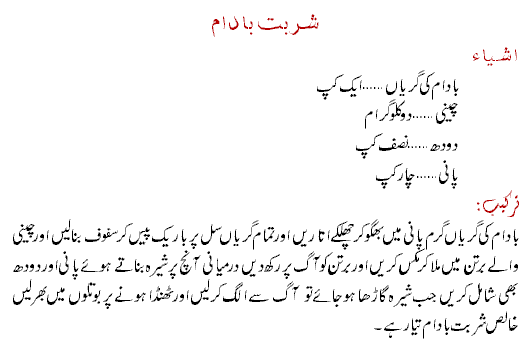 شربت بادام
اشیاء
بادام کی گریاں ......ایک کپ
چینی ......دو کلو گرام
دودھ ......نصف کپ
پانی ......چار کپ
ترکیب:
بادام کی گریاں گرم پانی میں بھگو کر چھلکے اتاریں اور تمام گریاں سل پر باریک پیس کر سفوف بنا لیں اور چینی
والے برتن میں ملا کر مکس کریں اور برتن کو آگ پر رکھ دیں درمیانی آنچ پر شیرہ بناتے ہوئے پانی اور دودھ
بھی شامل کریں جب شیرہ گاڑھا ہو جائے تو آگ سے الگ کر لیں اور ٹھنڈا ہونے پر بوتلوں میں بھر لیں
خالص شربت بادام تیار ہے۔